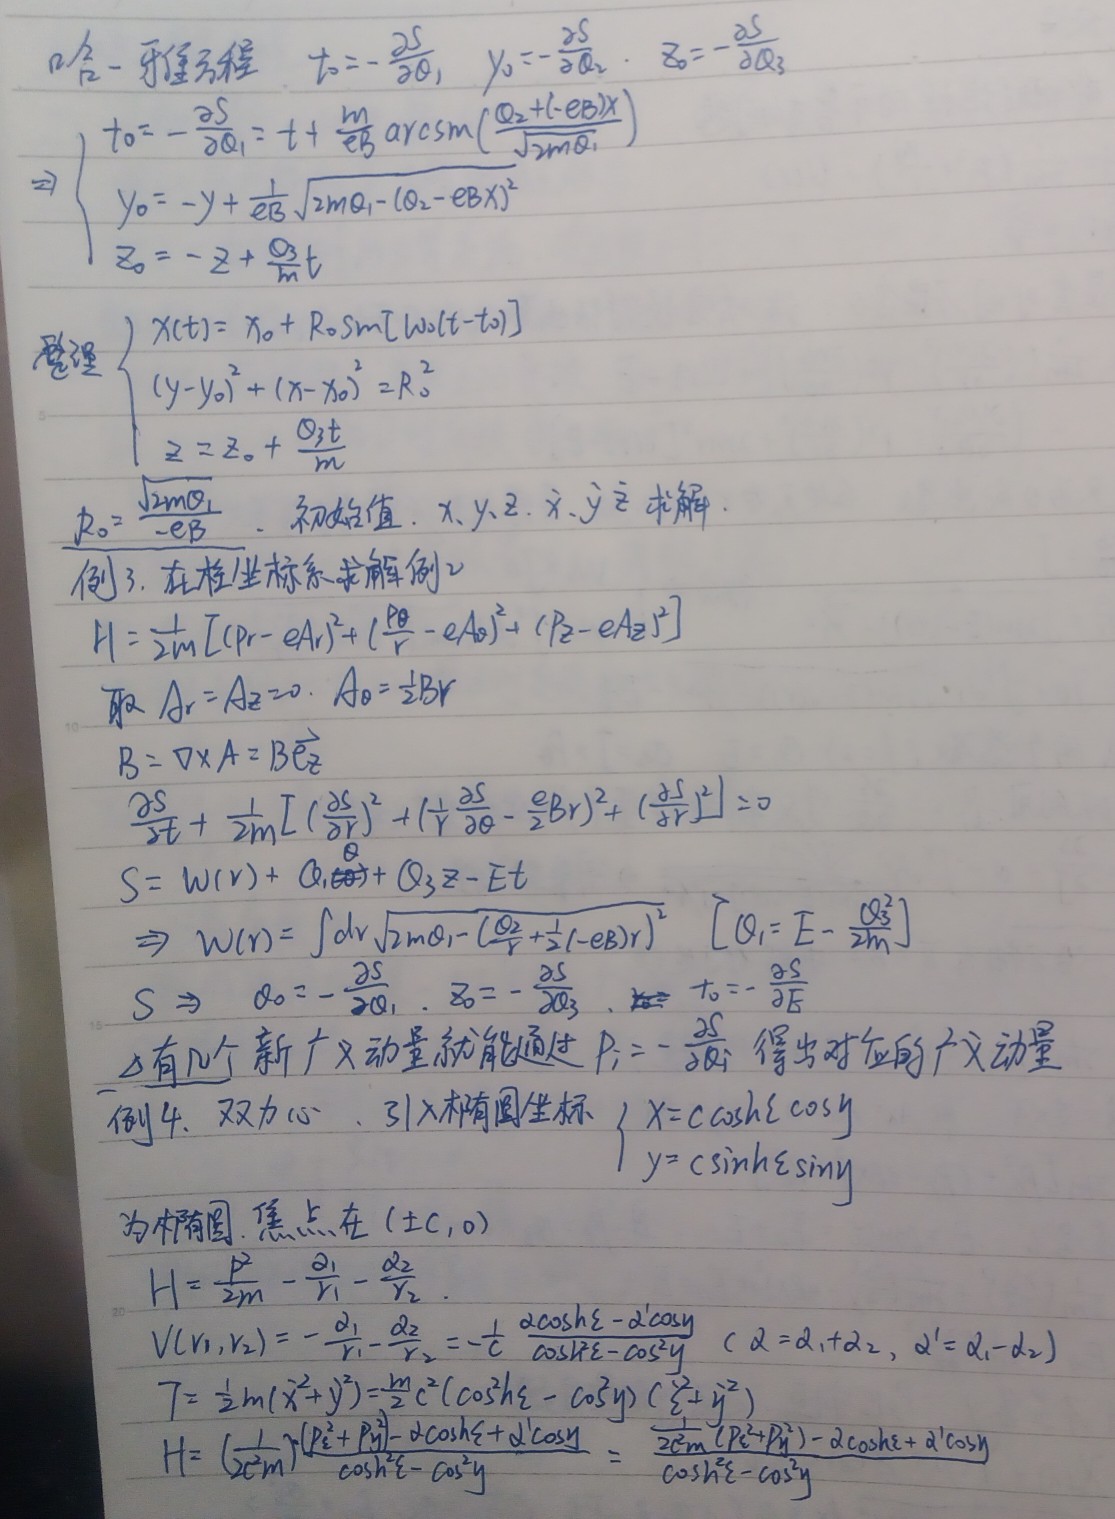 哈-雅方程 t₀=-∂S/∂Q₁ y₀=-∂S/∂Q₂. z₀=-∂S/∂Q₃
⇒ { t₀=-∂S/∂Q₁=t+m/eB arcsin(Q₂+(-eB)x/√2mQ₁)
y₀=-y+1/eB √2mQ₁-(Q₂-eBx)²
z₀=-z+Q₃/m t
整理 { x(t)=x₀+R₀sin[ω₀(t-t₀)]
(y-y₀)²+(x-x₀)²=R₀²
z=z₀+Q₃t/m
R₀=√2mQ₁/-eB . 初始值. x、y、z. ẋ、ẏ ż 求解.
例3. 在柱坐标系求解例2
H=1/2m[(Pr-eAr)²+(Pθ/r-eAθ)²+(Pz-eAz)²]
取 Ar=Az=0. Aθ=½Br
B=∇×A=Be⃗z
∂S/∂t+1/2m[(∂S/∂r)²+(1/r ∂S/∂θ-e/2Br)²+(∂S/∂r)²]=0
S=W(r)+Q₁θ+Q₃z-Et
⇒ W(r)=∫dr√2mQ₁-(Q₂/r+½(-eB)r)² [Q₁=E-Q₃²/2m]
S⇒ θ₀=-∂S/∂Q₁. z₀=-∂S/∂Q₃. t₀=-∂S/∂E
△有几个新广义动量就能通过Pᵢ=-∂S/∂Qᵢ 得出对应的广义动量
例4. 双力心. 引入椭圆坐标 { x=ccoshξcosy
y=csinhξsiny
为椭圆. 焦点在(±c,0)
H=p²/2m-α₁/r₁-α₂/r₂.
V(r₁,r₂)=-α₁/r₁-α₂/r₂=-1/c αcoshξ-α'cosy/cosh²ξ-cos²y (α=α₁+α₂, α'=α₁-α₂)
T=½m(ẋ²+ẏ²)=m/2c²(cos²hξ-cos²y)(ξ̇²+ẏ²)
H=(1/2c²m)·(Pξ²+Py²)-αcoshξ+α'cosy/cosh²ξ-cos²y=1/2c²m(Pξ²+Py²)-αcoshξ+α'cosy/cosh²ξ-cos²y